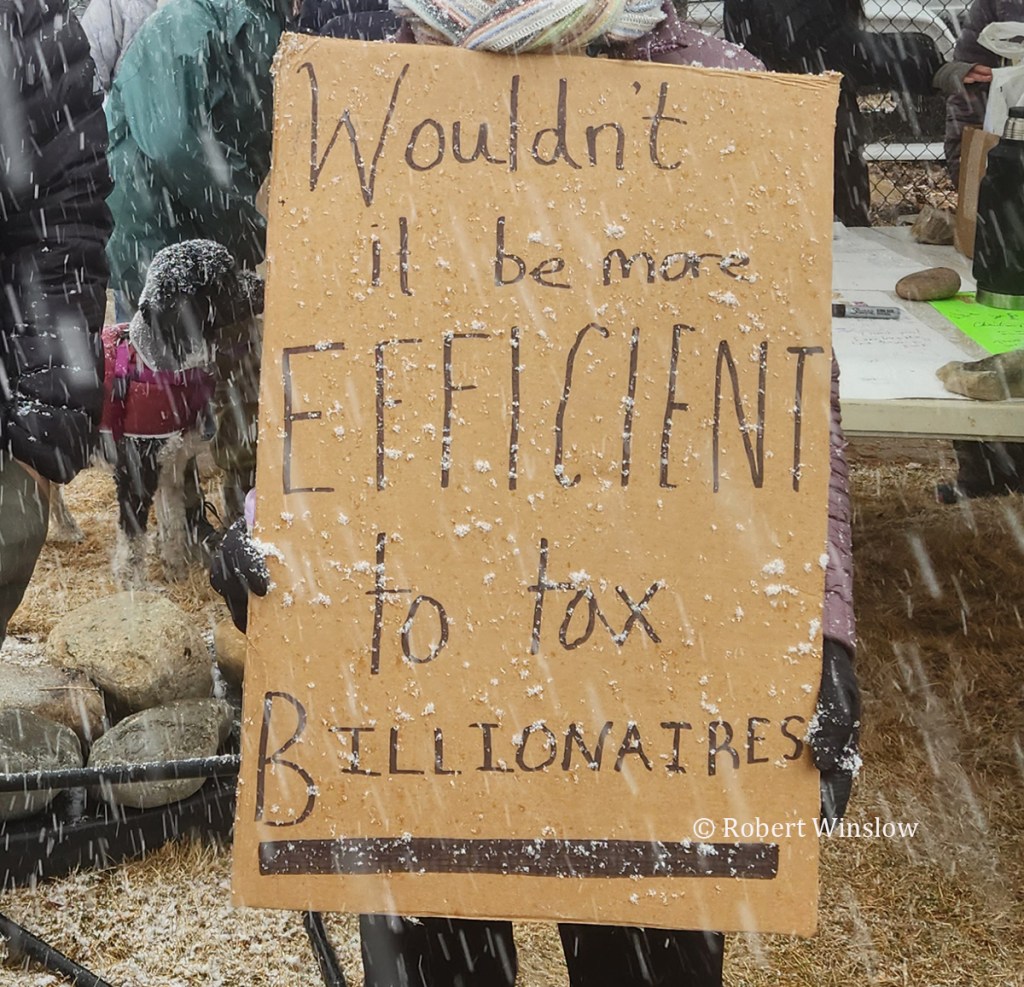 Wouldn't
it be more
EFFICIENT
to tax
BILLIONAIRES
© Robert Winslow